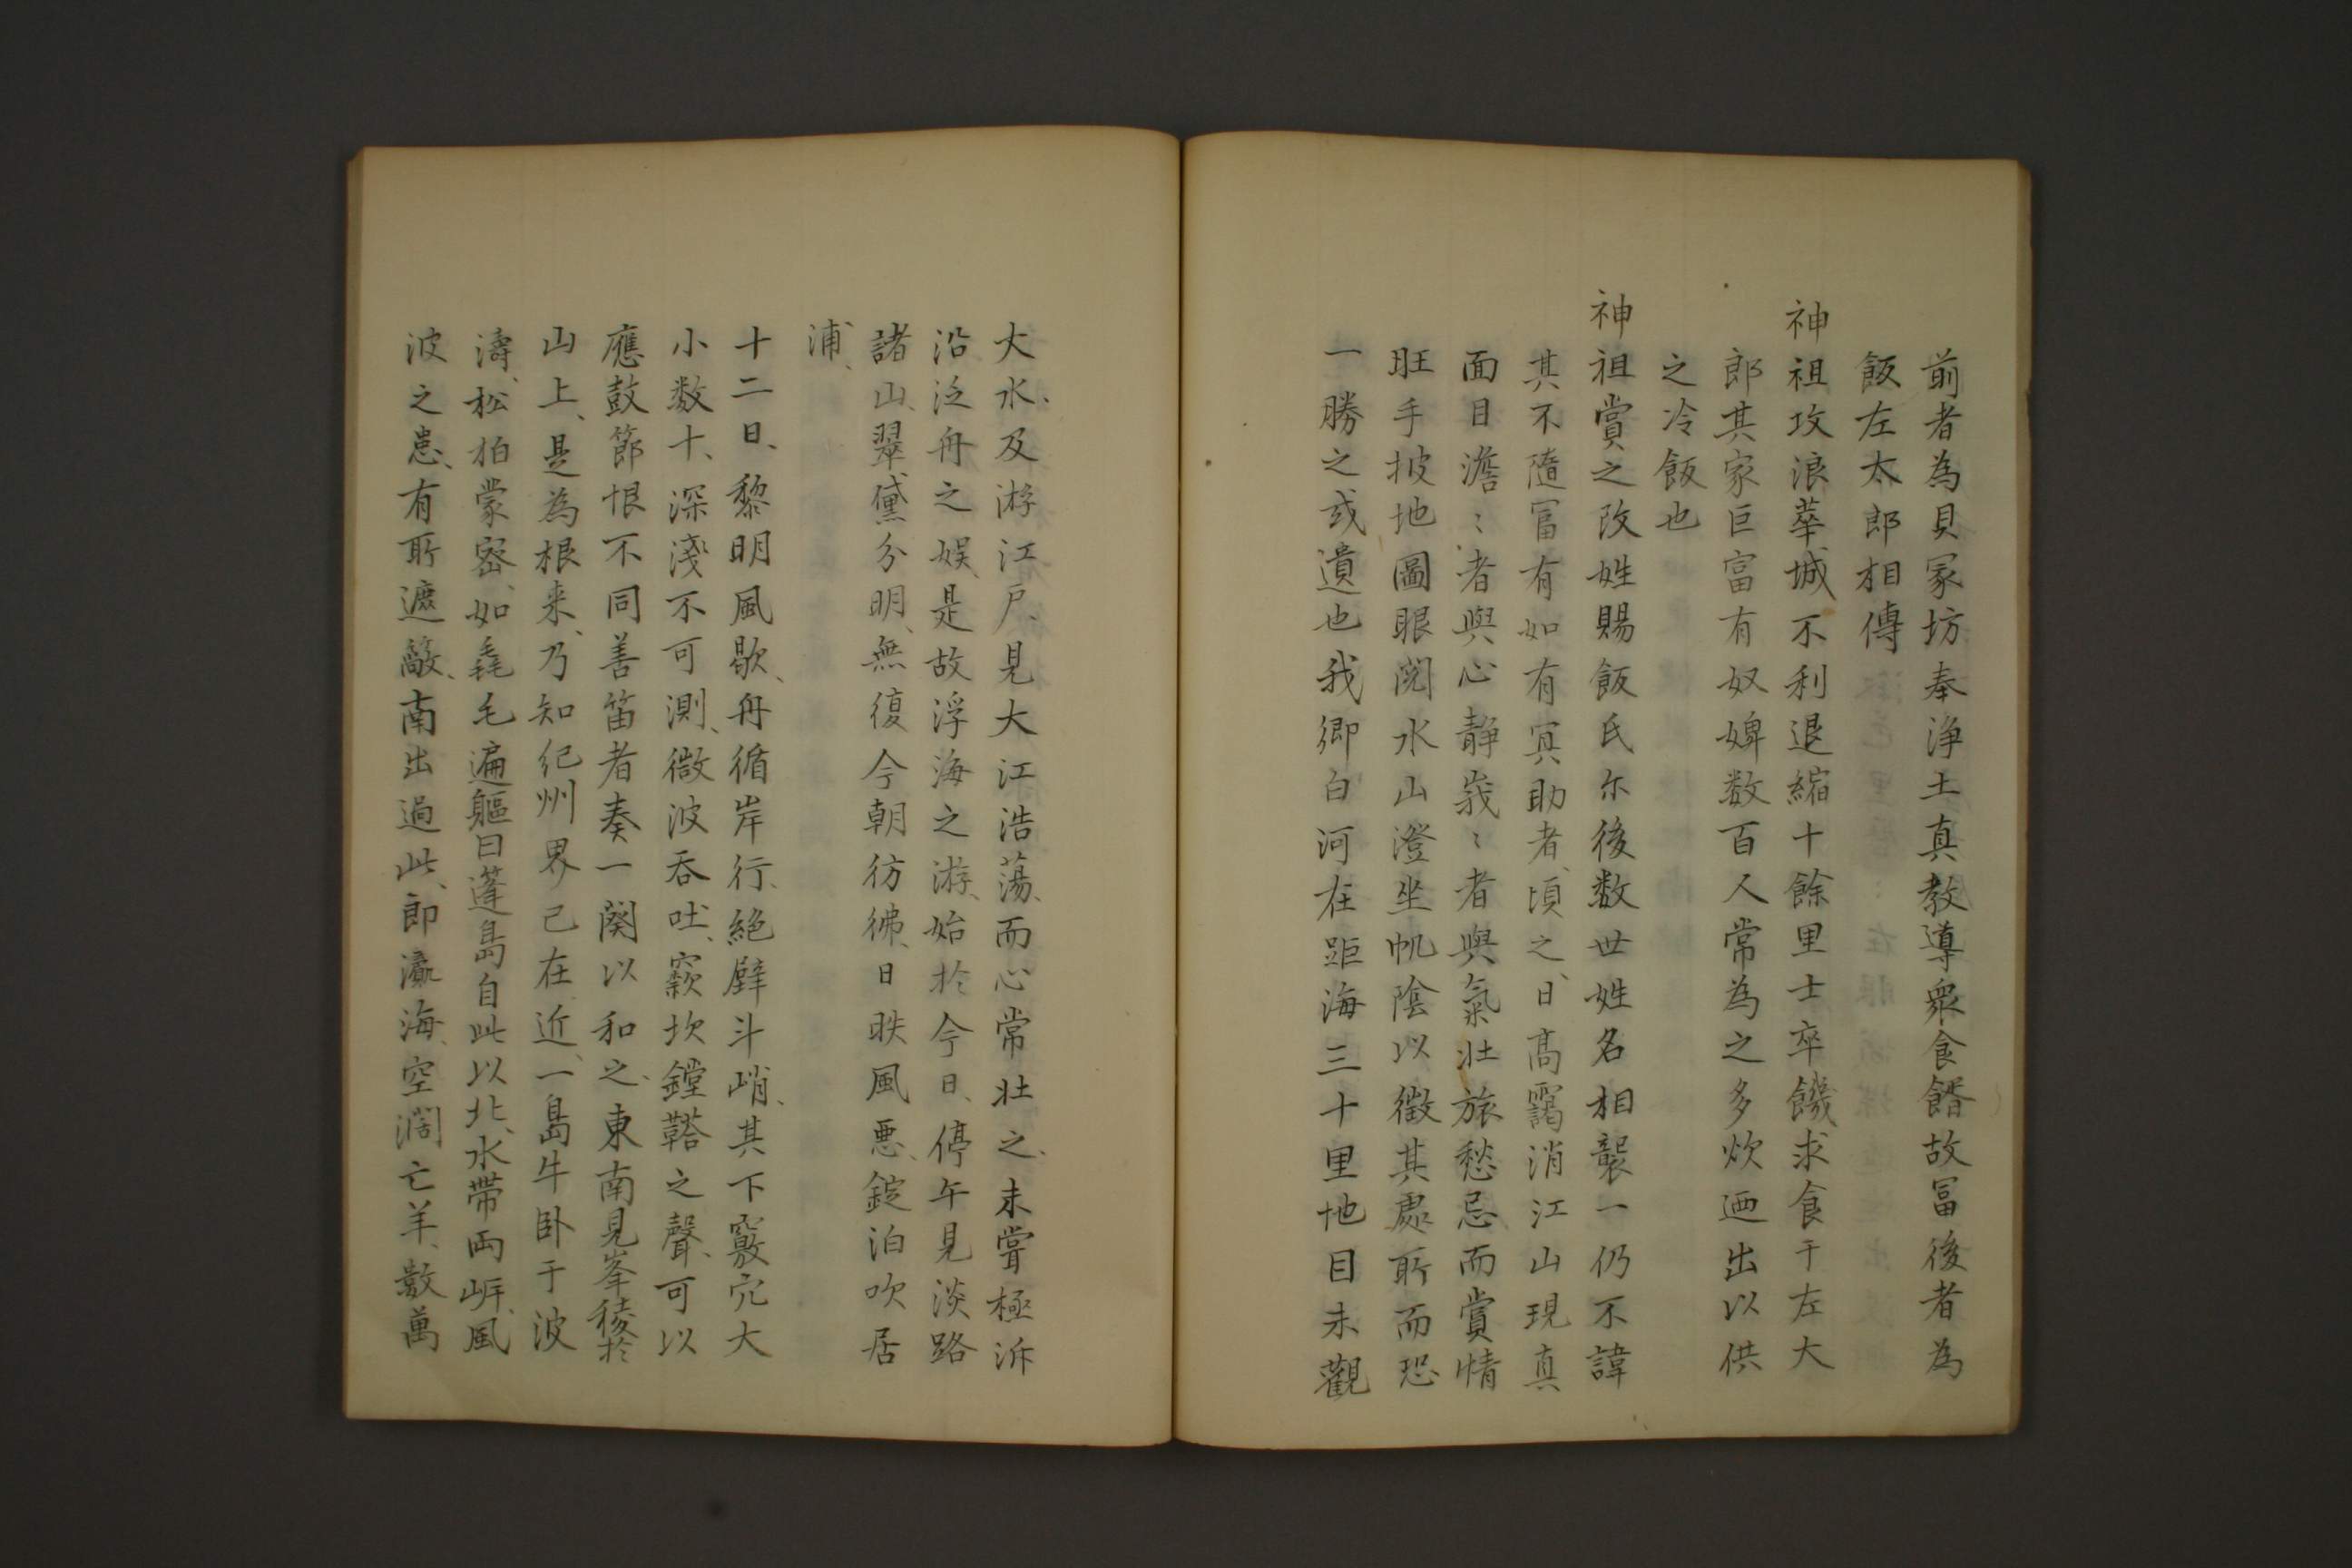 前者為貝冢坊奉浄土真教導衆食餚故冨後者為
飯左太郎相傳
神祖攻浪華城不利退縮十餘里士卒饑求食于左大
郎其家巨富有奴婢数百人常為之多炊迺出以供
之冷飯也
神祖賞之改姓賜飯氏尓後数世姓名相襲一仍不諱
其不隨冨有如有冥助者、頃之、日髙靄消江山現真
面目澹〻者與心静峩〻者與氣壮旅愁忌而賞情
旺手披地圖眼閲水山澄坐帆陰以徴其處所而恐
一勝之或遺也我郷白河在距海三十里地目未觀
大水、及游江戸、見大江浩蕩、而心常壮之、未嘗極泝
沿泛舟之娯、是故浮海之游、始於今日、停午見淡路
諸山、翠黛分明、無復今朝彷彿、日昳風悪、錠泊吹居
浦、
十二日、黎明風歇、舟循岸行、絶壁斗峭、其下竅穴大
小数十、深淺不可測、微波呑吐、窾坎鏜鞳之聲、可以
應鼓節恨不同善笛者奏一闋以和之、東南見峯稜於
山上、是為根来、乃知紀州界已在近、一島牛卧于波
濤、松柏蒙密、如毳毛遍軀曰蓬島自此以北、水帶両岸、風
波之患、有所遮蔽、南出過此、即瀛海、空濶亡羊、数萬